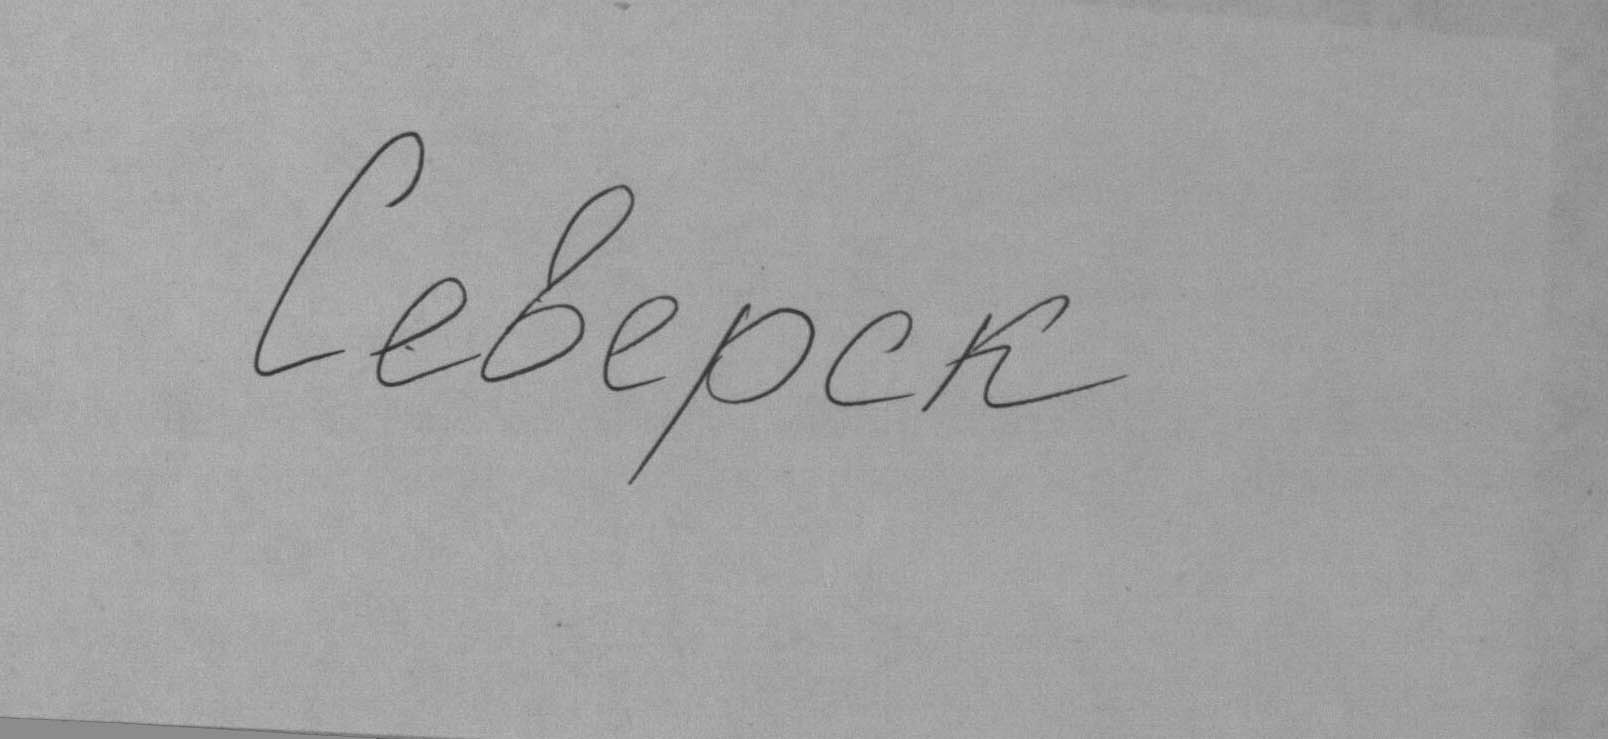 Северск